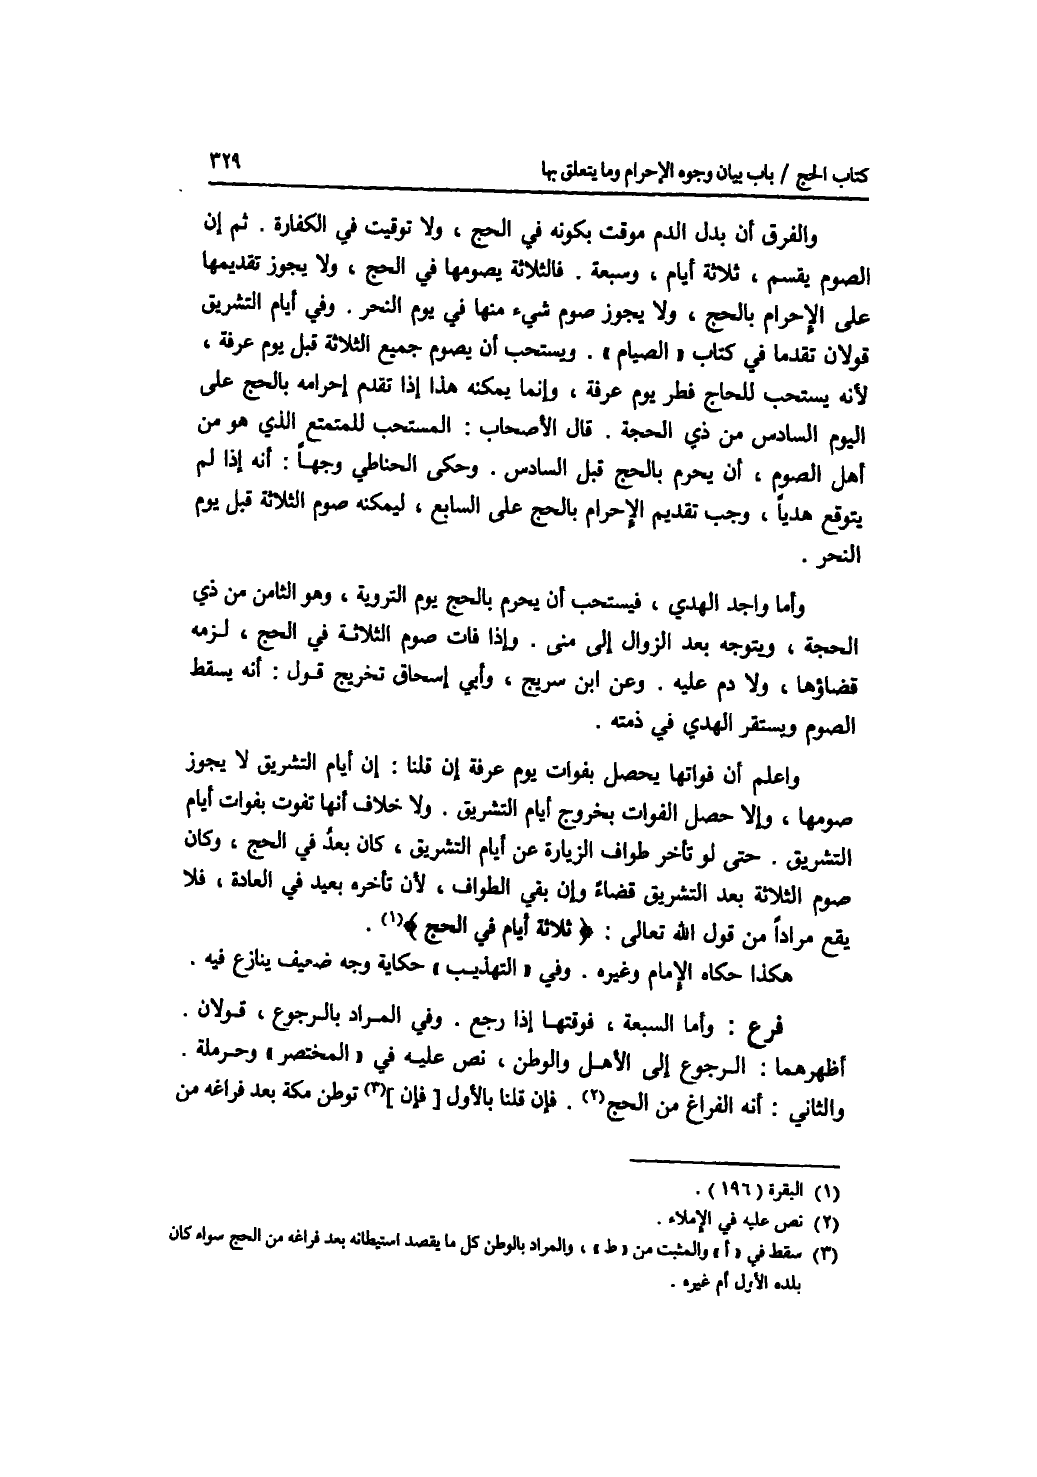 كتاب الحج / باب بيان وجوه الإحرام وما يتعلق بها ٣٢٩
والفرق أن بدل الدم موقت بكونه في الحج ، ولا توقيت في الكفارة . ثم إن
الصوم يقسم ، ثلاثة أيام ، وسبعة . فالثلاثة يصومها في الحج ، ولا يجوز تقديمها
على الإحرام بالحج ، ولا يجوز صوم شيء منها في يوم النحر . وفي أيام التشريق
قولان تقدما في كتاب « الصيام » . ويستحب أن يصوم جميع الثلاثة قبل يوم عرفة ،
لأنه يستحب للحاج فطر يوم عرفة ، وإنما يمكنه هذا إذا تقدم إحرامه بالحج على
اليوم السادس من ذي الحجة . قال الأصحاب : المستحب للمتمتع الذي هو من
أهل الصوم ، أن يحرم بالحج قبل السادس . وحكى الحناطي وجهـاً : أنه إذا لم
يتوقع هدياً ، وجب تقديم الإحرام بالحج على السابع ، ليمكنه صوم الثلاثة قبل يوم
النحر .
وأما واجد الهدي ، فيستحب أن يحرم بالحج يوم التروية ، وهو الثامن من ذي
الحجة ، ويتوجه بعد الزوال إلى منى . وإذا فات صوم الثلاثـة في الحج ، لـزمه
قضاؤها ، ولا دم عليه . وعن ابن سريج ، وأبي إسحاق تخريج قـول : أنه يسقط
الصوم ويستقر الهدي في ذمته .
واعلم أن فواتها يحصل بفوات يوم عرفة إن قلنا : إن أيام التشريق لا يجوز
صومها ، وإلا حصل الفوات بخروج أيام التشريق . ولا خلاف أنها تفوت بفوات أيام
التشريق . حتى لو تأخر طواف الزيارة عن أيام التشريق ، كان بعدُ في الحج ، وكان
صوم الثلاثة بعد التشريق قضاءً وإن بقي الطواف ، لأن تأخره بعيد في العادة ، فلا
يقع مراداً من قول الله تعالى : ﴿ ثلاثة أيام في الحج ﴾(١) .
هكذا حكاه الإمام وغيره . وفي « التهذيـب » حكاية وجه ضعيف ينازع فيه .
فرع : وأما السبعة ، فوقتهـا إذا رجع . وفي المـراد بالـرجوع ، قـولان .
أظهرهمـا : الـرجوع إلى الأهـل والوطن ، نص عليـه في « المختصر » وحـرملة .
والثاني : أنه الفراغ من الحج(٢) . فإن قلنا بالأول [ فإن ](٣) توطن مكة بعد فراغه من
(١) البقرة ( ١٩٦ ) .
(٢) نص عليه في الإملاء .
(٣) سقط في « أ » والمثبت من « ط » ، والمراد بالوطن كل ما يقصد استيطانه بعد فراغه من الحج سواء كان
بلده الأول أم غيره .